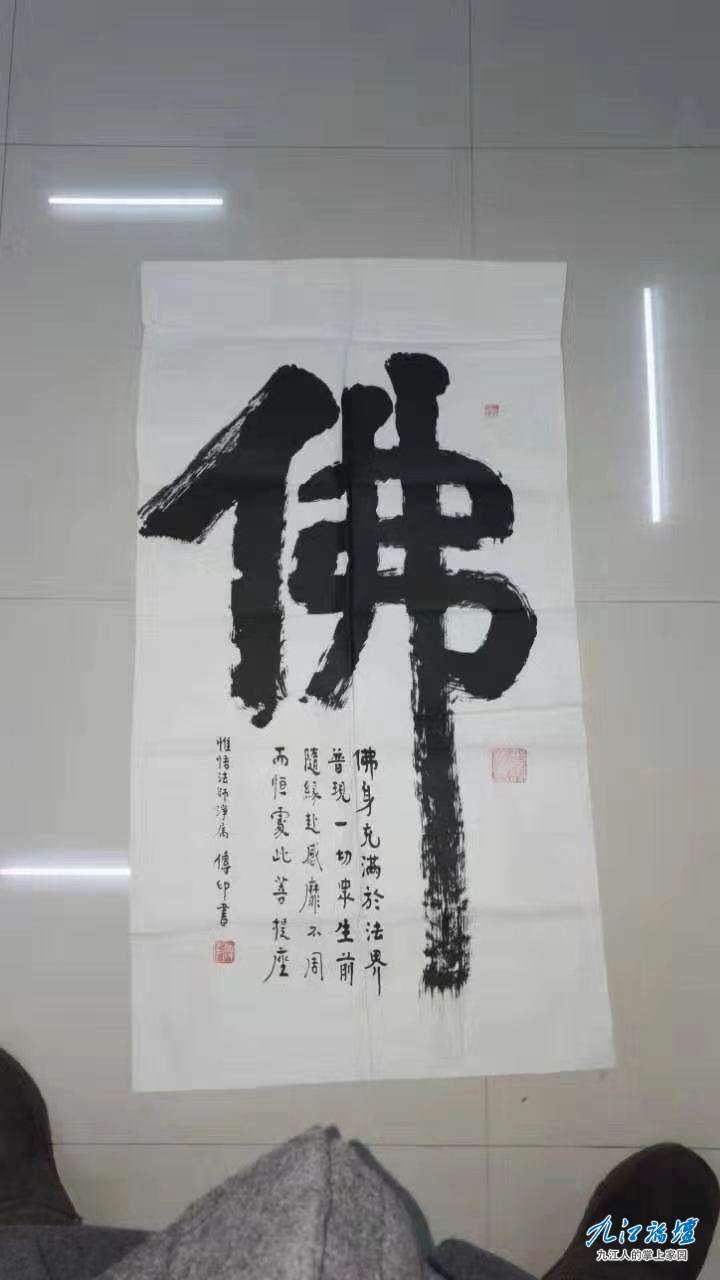 佛
佛身充滿於法界
普現一切眾生前
隨緣赴感靡不周
而恒處此菩提座
惟悟法師淨屬
傳印書
九江論壇
九江人的掌上家园